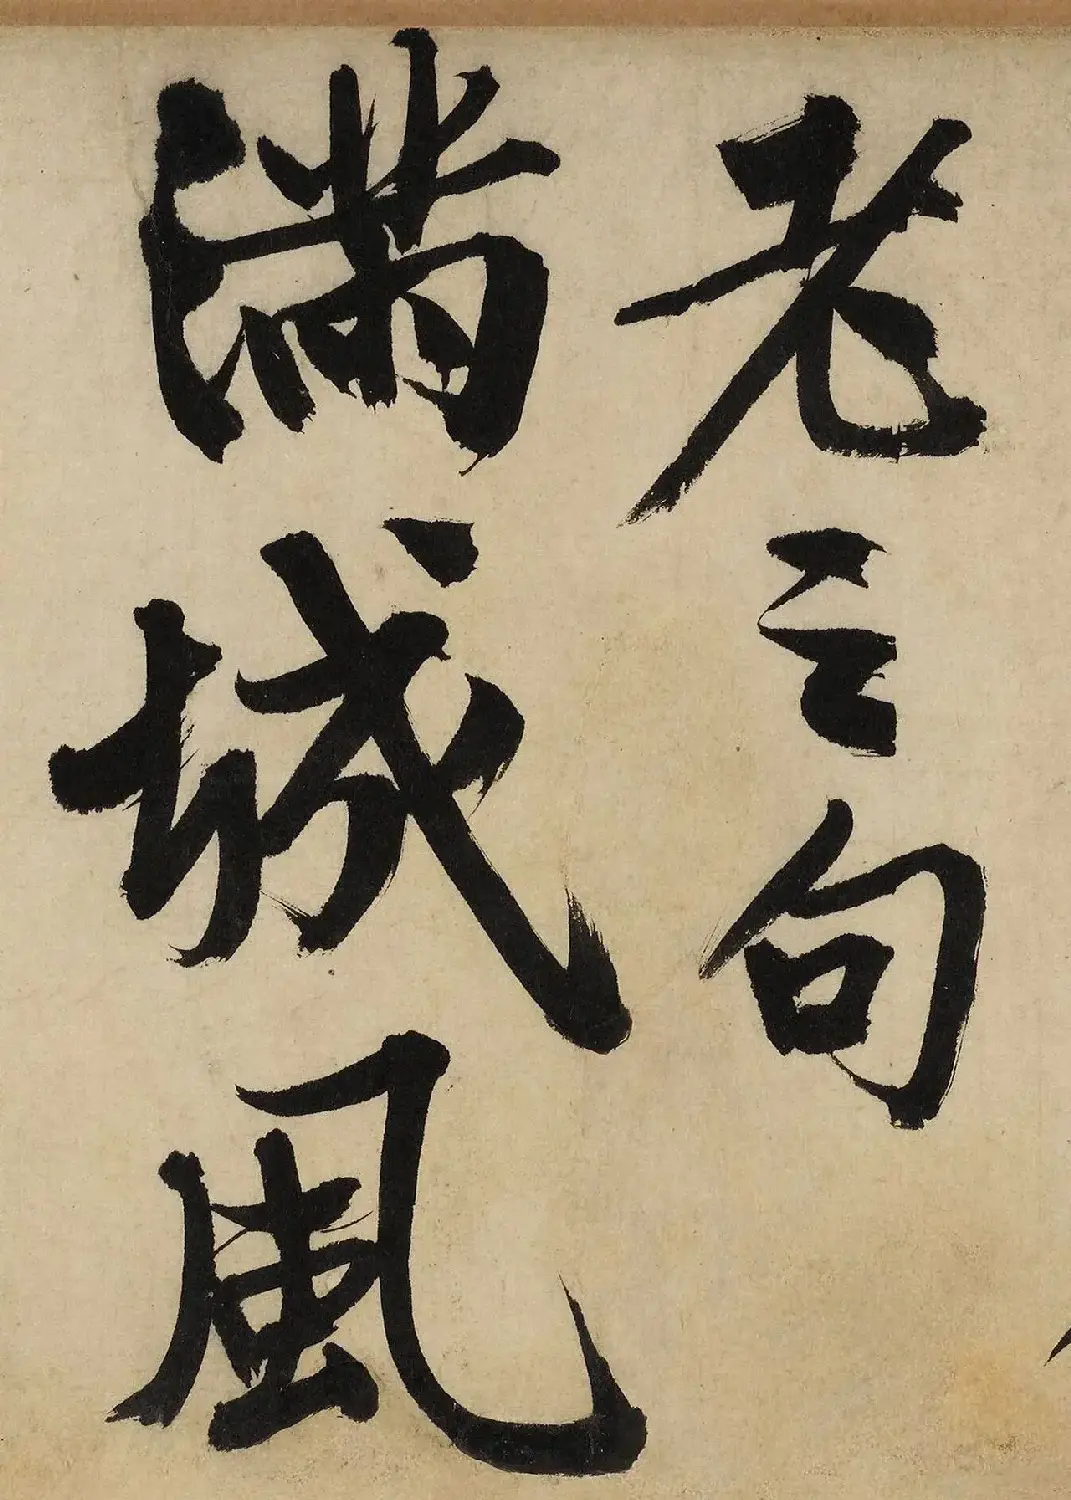 老之句
滿城風